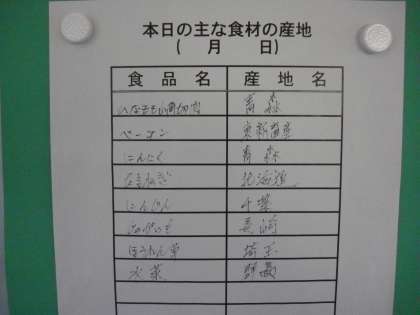 本日の主な食材の産地
(　月　日)
食品名　産地名
青森
ベーコン
にんにく　青森
たまねぎ　北海道
にんじん　千葉
じゃがいも　長崎
ほうれん草　埼玉
水菜　群馬